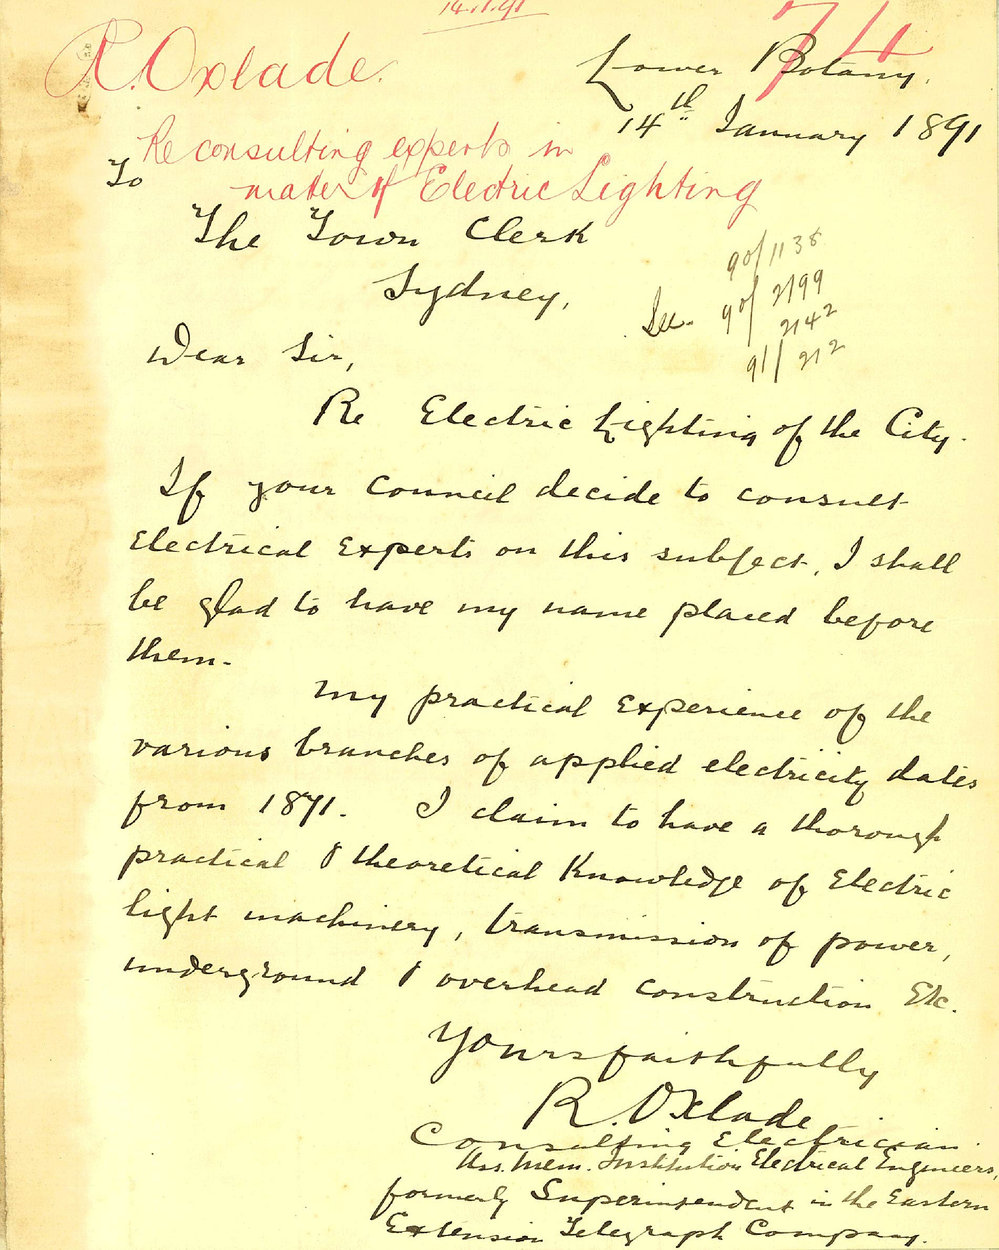 14.1.91
74
R. Oxlade.
Lower Botany.
14th January 1891
Re consulting experts in
matter of Electric Lighting
To
The Town Clerk
Sydney,
90/1138
See. 90/2199
2142
91/212
Dear Sir,
Re Electric Lighting of the City.
If your Council decide to consult
Electrical Experts on this subject, I shall
be glad to have my name placed before
them.
My practical Experience of the
various branches of applied electricity dates
from 1871. I claim to have a thorough
practical & theoretical Knowledge of Electric
light machinery, transmission of power,
underground & overhead construction Etc.
Yours faithfully
R. Oxlade
Consulting Electrician
Ass. Mem. Institution Electrical Engineers,
formerly Superintendent in the Eastern
Extension Telegraph Company.